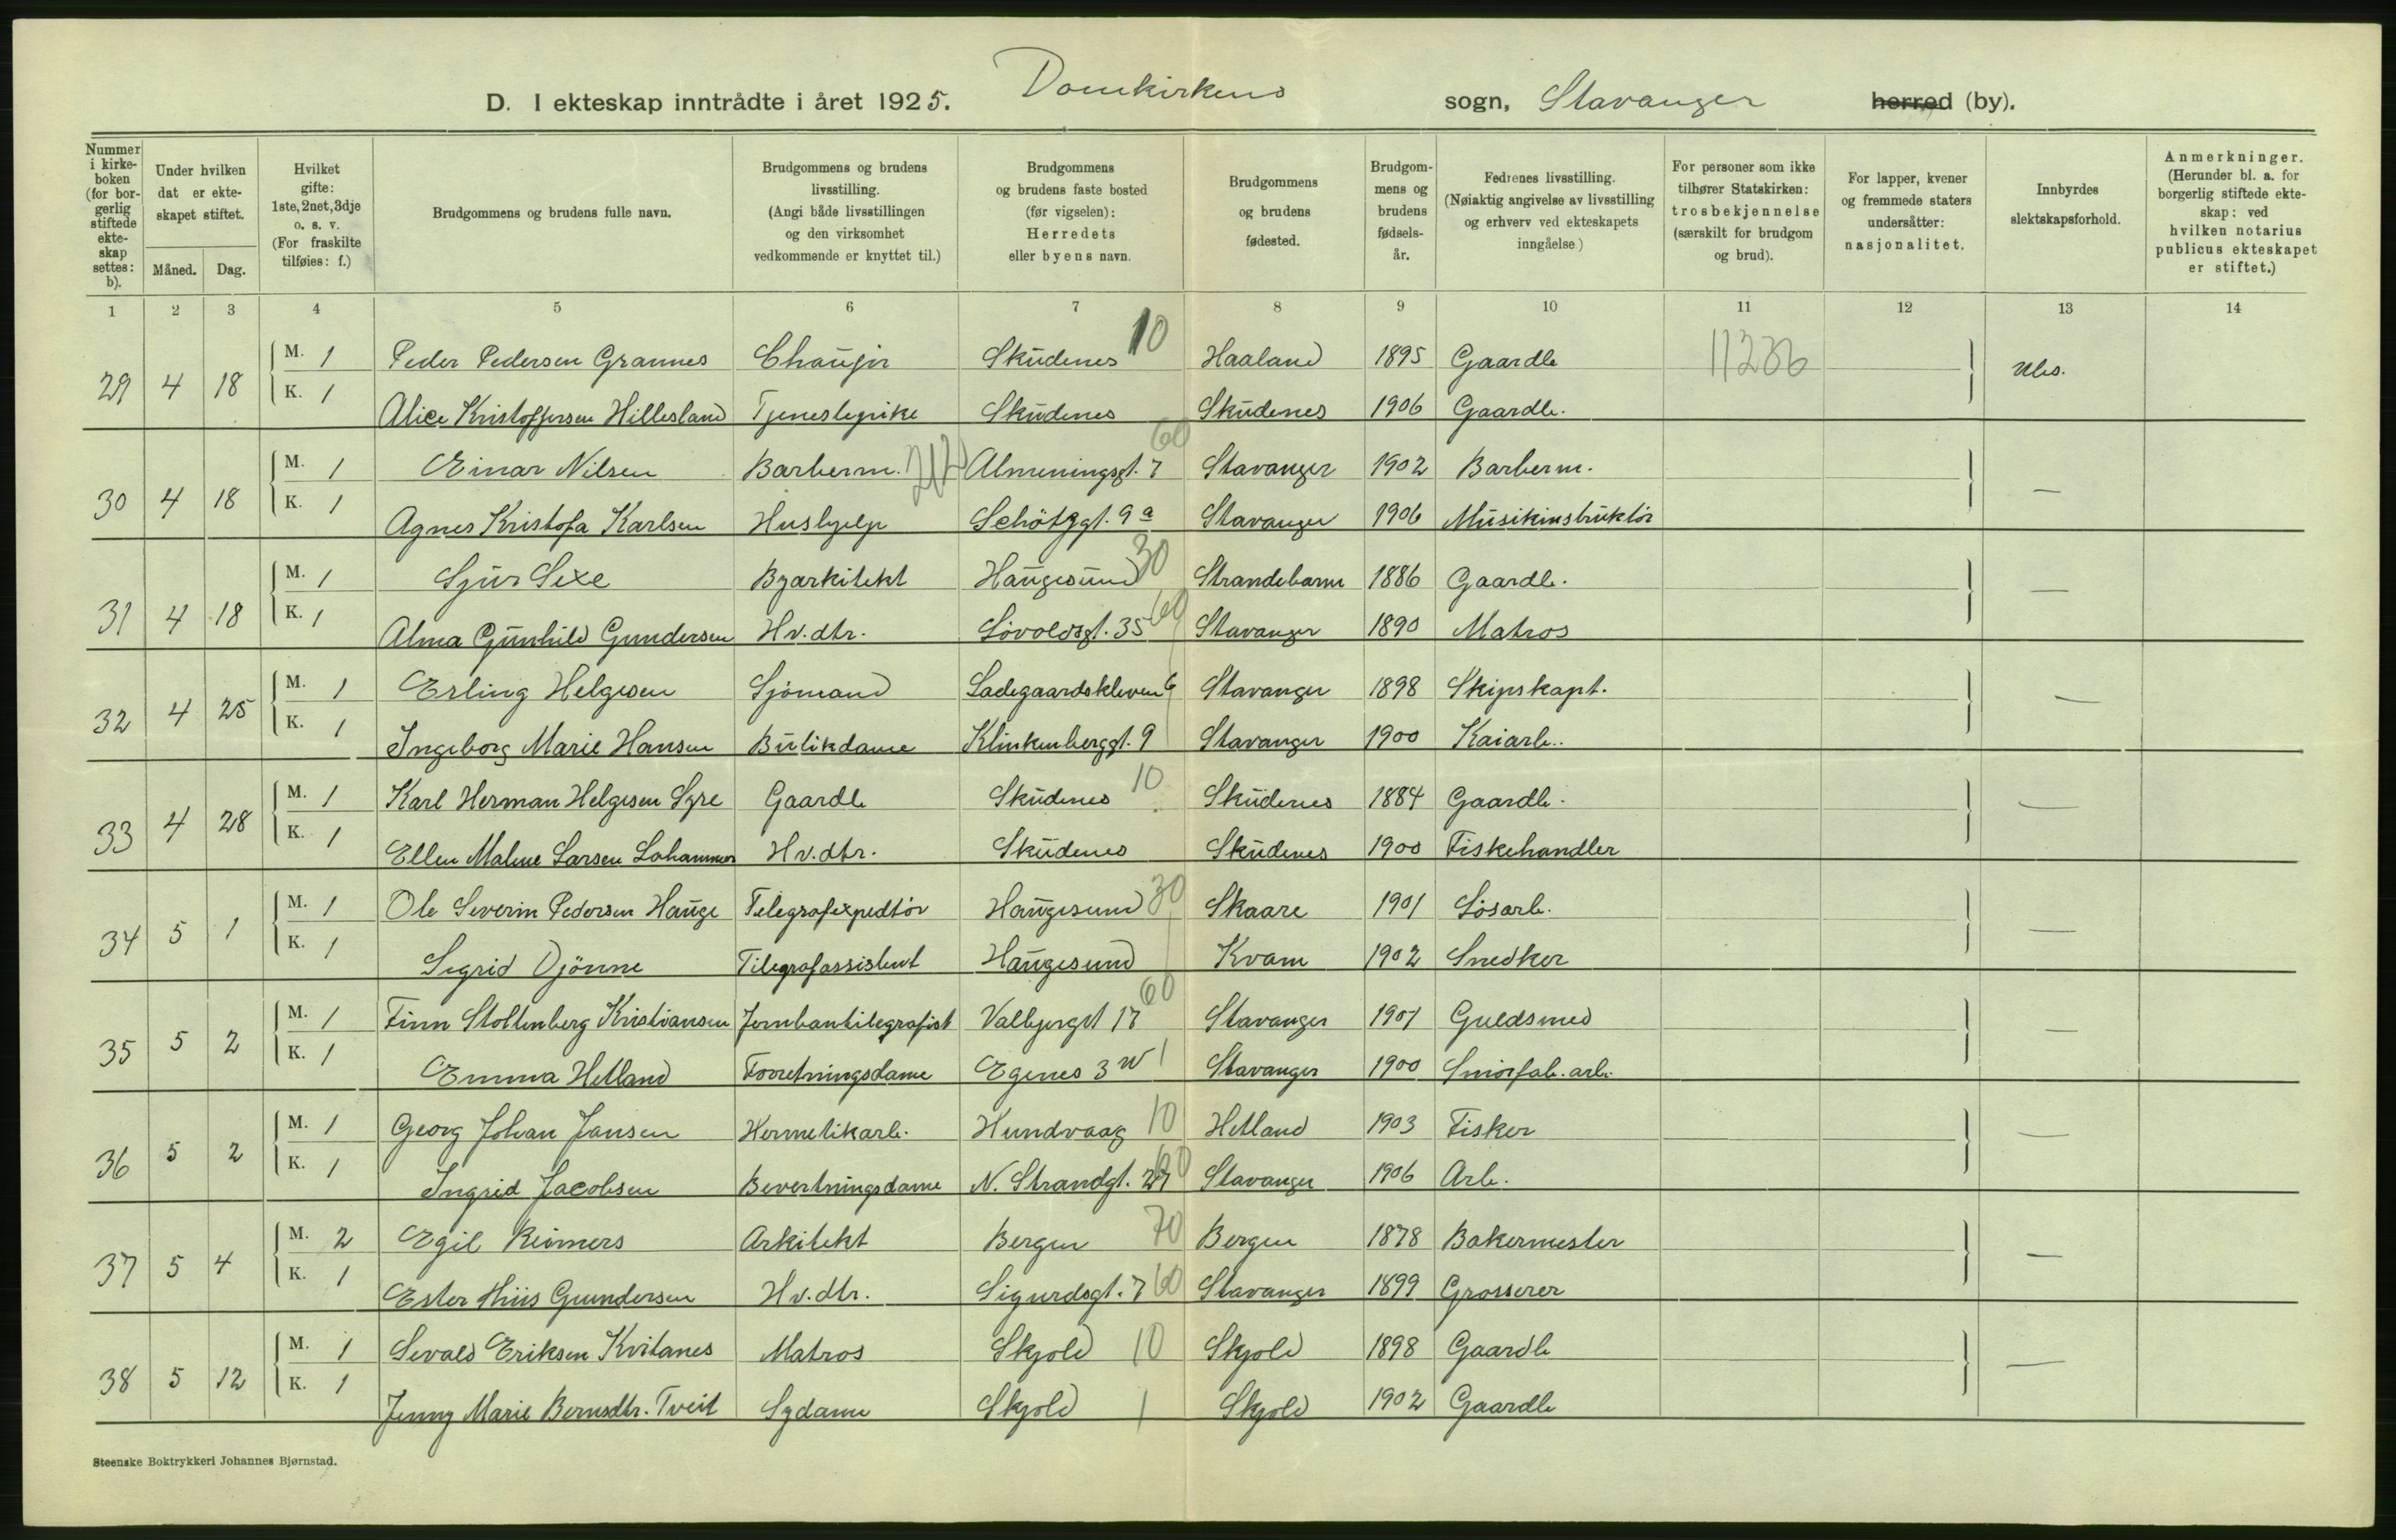 D. I ekteskap inntrådte i året 1925. Domkirkens sogn, Stavanger herred (by).
Nummer i kirkeboken (for borgerlig stiftede ekteskap settes: b).
Under hvilken dat er ekteskapet stiftet.
Måned. Dag.
Hvilket gifte: 1ste, 2net, 3dje o. s. v. (For fraskilte tilføies: f.)
Brudgommens og brudens fulle navn.
Brudgommens og brudens livsstilling. (Angi både livsstillingen og den virksomhet vedkommende er knyttet til.)
Brudgommens og brudens faste bosted (før vigselen): Herredets eller byens navn.
Brudgommens og brudens fødested.
Brudgommens og brudens fødselsår.
Fedrenes livsstilling. (Nøiaktig angivelse av livsstilling og erhverv ved ekteskapets inngåelse)
For personer som ikke tilhører Statskirken: trosbekjennelse (særskilt for brudgom og brud).
For lapper, kvener og fremmede staters undersåtter: nasjonalitet.
Innbyrdes slektskapsforhold.
Anmerkninger. (Herunder bl. a. for borgerlig stiftede ekteskap: ved hvilken notarius publicus ekteskapet er stiftet.)
1 2 3 4 5 6 7 8 9 10 11 12 13 14
29 4 18 M. 1 Peder Pedersen Grannes Chaufør Skudenes 10 Haaland 1895 Gaardb 11236 Ubs.
K. 1 Alice Kristoffersen Hillesland Tjenestepike Skudenes Skudenes 1906 Gaardb.
30 4 18 M. 1 Einar Nilsen Barberm. Almeningsgt. 7 60 Stavanger 1902 Barberm. —
K. 1 Agnes Kristofa Karlsen Hushjelp Schötzgt. 9a Stavanger 1906 Musikinstruktør
31 4 18 M. 1 Sjur Sexe Byarkitekt Haugesund 30 Strandebarm 1886 Gaardb. —
K. 1 Alma Gunhild Gundersen Hv.dtr. Løvoldsgt. 35 60 Stavanger 1890 Matros
32 4 25 M. 1 Erling Helgesen Sjømand Ladegaardskleven 6 Stavanger 1898 Skipskapt. —
K. 1 Ingeborg Marie Hansen Butikdame Klinkenberggt. 9 Stavanger 1900 Kaiarb.
33 4 28 M. 1 Karl Herman Helgesen Syre Gaardb Skudenes 10 Skudenes 1884 Gaardb. —
K. 1 Ellen Malene Larsen Lahammer Hv.dtr. Skudenes Skudenes 1900 Fiskehandler
34 5 1 M. 1 Ole Severin Pedersen Hauge Telegrafexpedtør Haugesund 30 Skaare 1901 Løsarb. —
K. 1 Sigrid Djönne Telegrafassistent Haugesund Kvam 1902 Snedker
35 5 2 M. 1 Finn Stoltenberg Kristiansen Jernbantelegrafist Valbjergt 17 60 Stavanger 1901 Guldsmed —
K. 1 Emma Hetland Forretningsdame Egenes 3 Stavanger 1900 Smörfab. arb.
36 5 2 M. 1 Georg Johan Jansen Hermetikarb. Hundvaag 10 Hetland 1903 Fisker —
K. 1 Ingrid Jacobsen Bevertningsdame N. Strandgt. 27 60 Stavanger 1906 Arb.
37 5 4 M. 2 Egil Reimers Arkitekt Bergen 70 Bergen 1878 Bakermester —
K. 1 Ester Hiis Gundersen Hv.dtr. Sigurdsgt. 7 60 Stavanger 1899 Grosserer
38 5 12 M. 1 Sevald Eriksen Kvitanes Matros Skjold 10 Skjold 1898 Gaardb —
K. 1 Jenny Marie Bernsdtr. Tveit Sydame Skjold Skjold 1902 Gaardb
Steenske Boktrykkeri Johannes Bjørnstad.